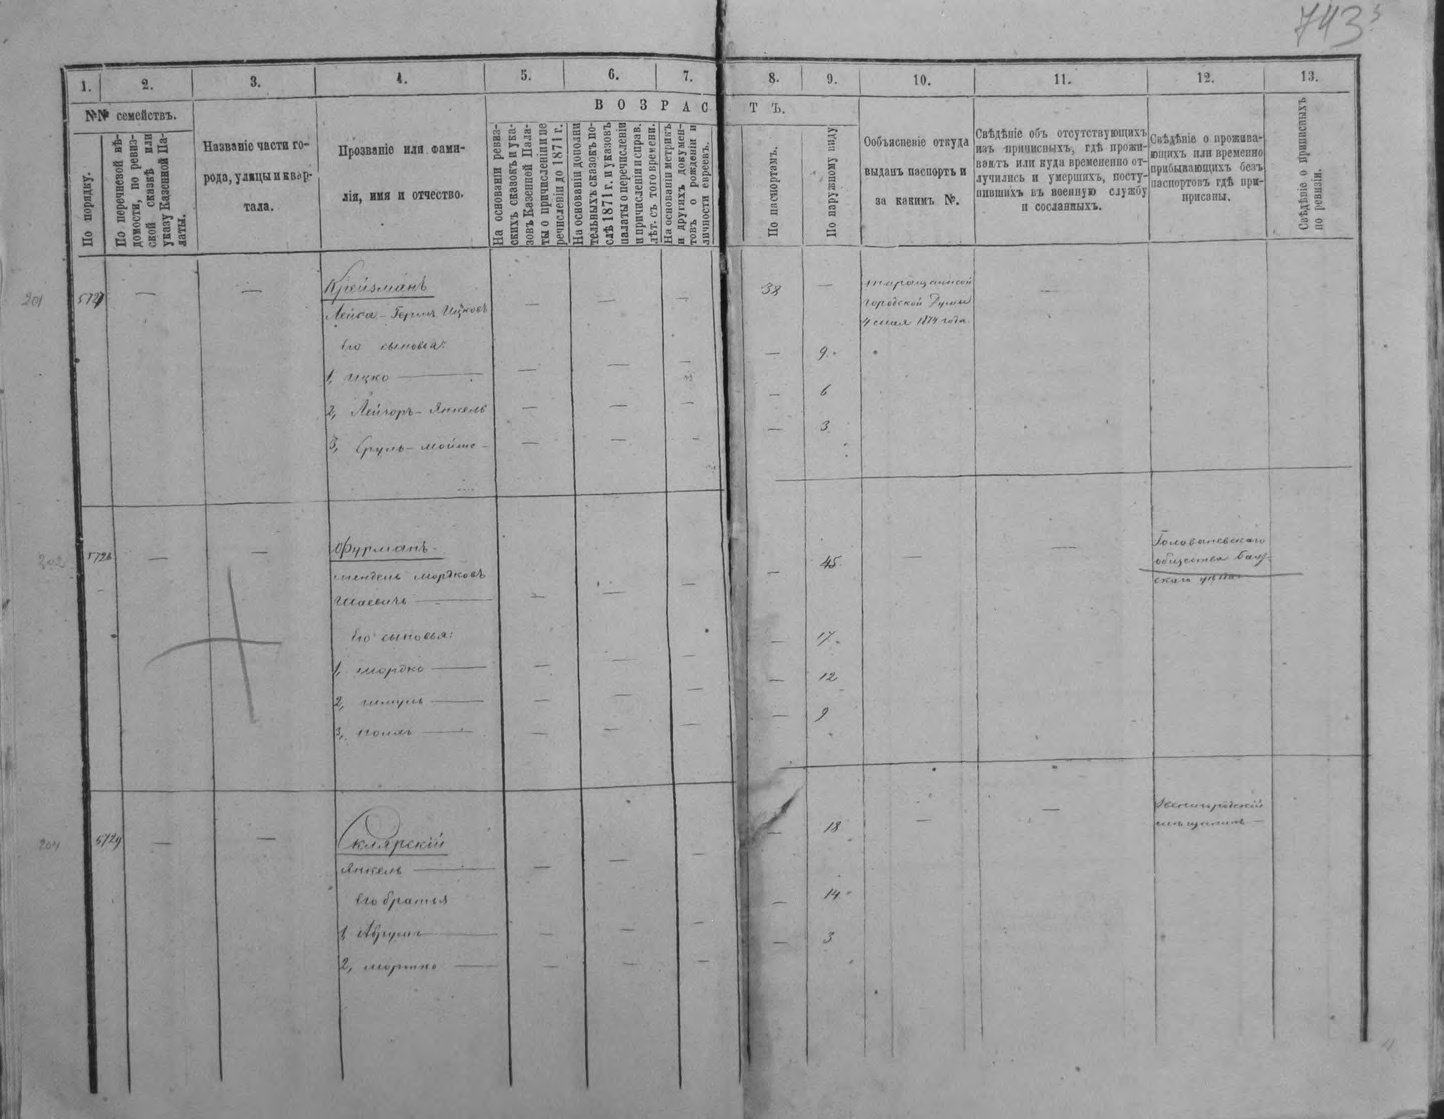 743
1.
2.
3.
4.
5.
6.
7.
8.
9.
10.
11.
12.
13.
№№ семействъ.
По порядку.
По перечневой вѣ-
домости, по ревиз-
ской сказкѣ или
указу Казенной Па-
латы.
Названіе части го-
рода, улицы и квар-
тала.
Прозваніе или фами-
лія, имя и отчество.
ВОЗРАСТЪ.
На основаніи ревиз-
скихъ сказокъ и ука-
зовъ Казенной Пала-
ты о причисленіи и пе
речисленіи до 1871 г.
На основаніи дополни
тельныхъ сказокъ по-
слѣ 1871 г. и указовъ
палаты о перечисленіи
и причисленіи и справ.
лѣт. съ того времени.
На основаніи метрикъ
и другихъ докумен-
товъ о рожденіи и
личности евреевъ.
По паспортамъ.
По наружному виду
Объясненіе откуда
выданъ паспортъ и
за какимъ №.
Свѣдѣніе объ отсутствующихъ
изъ приписныхъ, гдѣ прожи-
ваютъ или куда временно от-
лучились и умершихъ, посту-
пившихъ въ военную службу
и сосланныхъ.
Свѣдѣніе о прожива-
ющихъ или временно
прибывающихъ безъ
паспортовъ гдѣ при-
писаны.
Свѣдѣніе о приписныхъ
по ревизіи.
201
5727 — — Крейзманъ 38 — Таращанской
Лейса-Герш Ицковъ — — — городской Думы —
4 мая 1874 года
его сыновья:
1, Ицко — — — — — 9.
2, Лейзоръ-Янкель — — — — 6
3, Сруль-Мойше — — — — 3
202
5728 — — Фурманъ — 45 — — Голованевскаго
общества Балт-
скаго уѣзда
Мендель Мордковъ
Шаевичъ — — — —
его сыновья:
1, Мордко — — — — — 17.
2, Шмуль — — — — — 12
3, — — — — — 9
204
5729 — — Склярскій — 18 — — Звенигородскій
мѣщанинъ —
Янкель — — — —
его братья — 14
1, — — — — — 3
2, Мортко — — — —